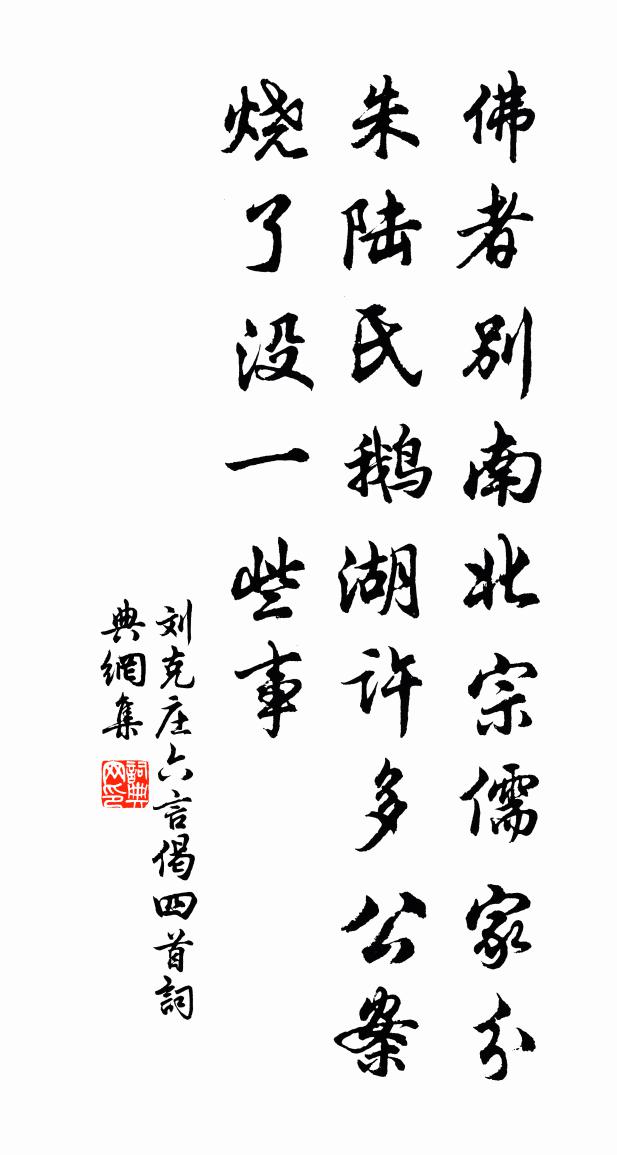 佛者别南北宗儒家分
朱陆氏鹅湖许多公案
烧了没一些事
刘克庄六言偈四首詞
典網集
詞典
网印